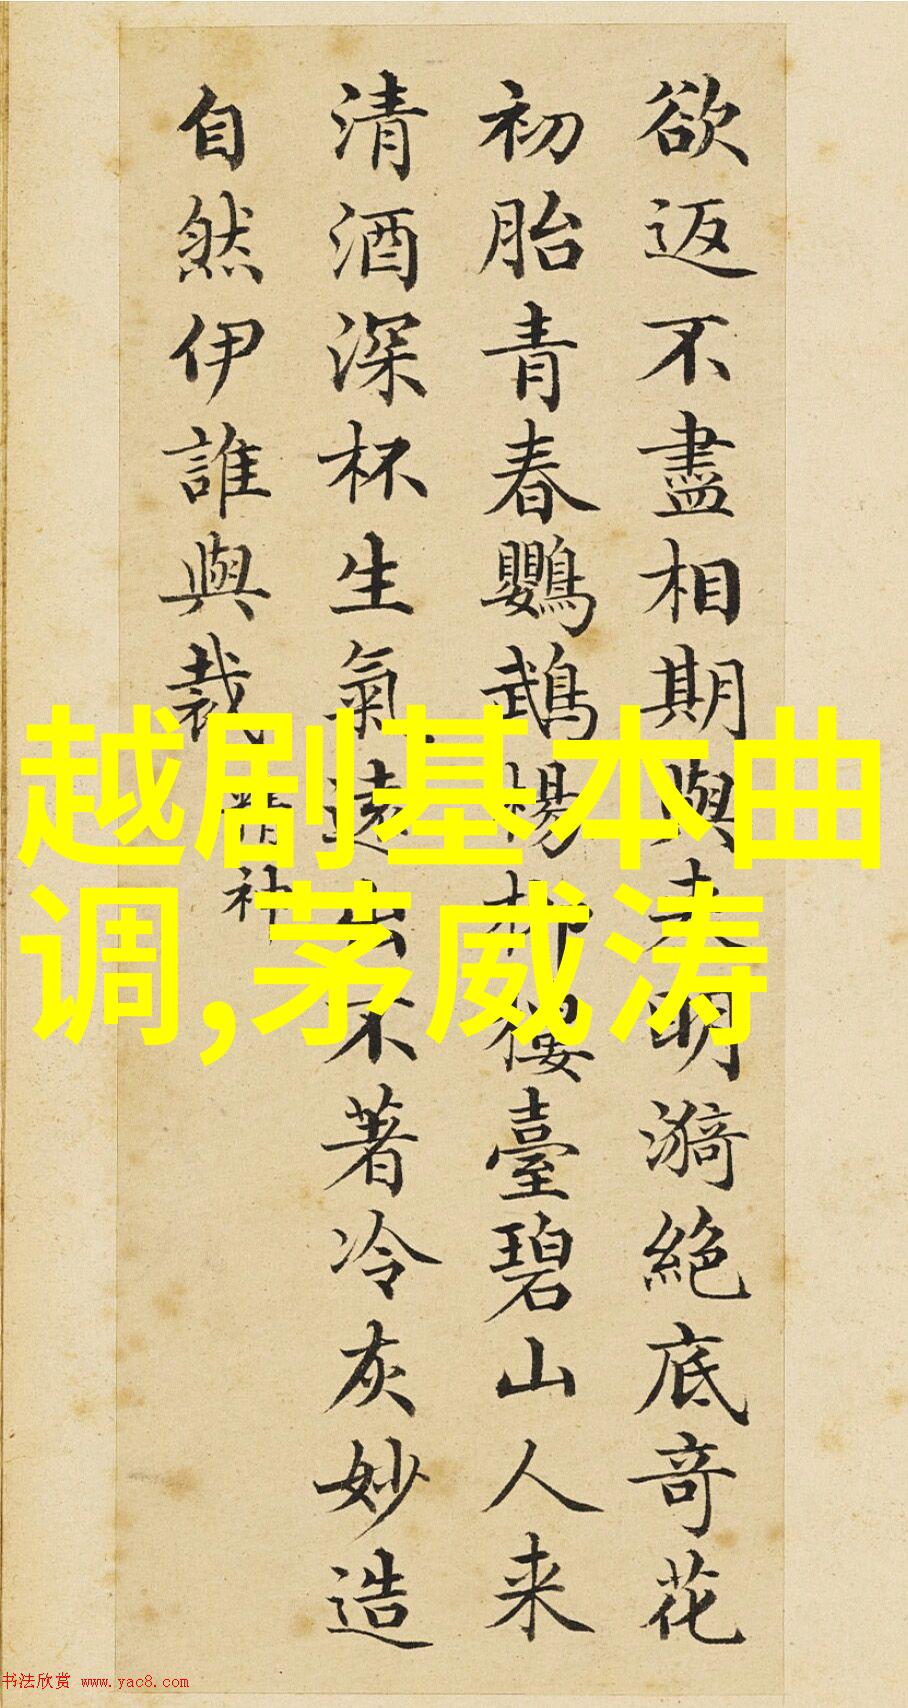 欲返不盡相期與来明漪絕底竒花
初胎青春鸚鵡楊柳樓臺碧山人来
清酒深杯生氣遠出不著冷灰妙造
自然伊誰與裁
精神
越剧基本曲
调,茅威涛
书法欣赏 www.yac8.com